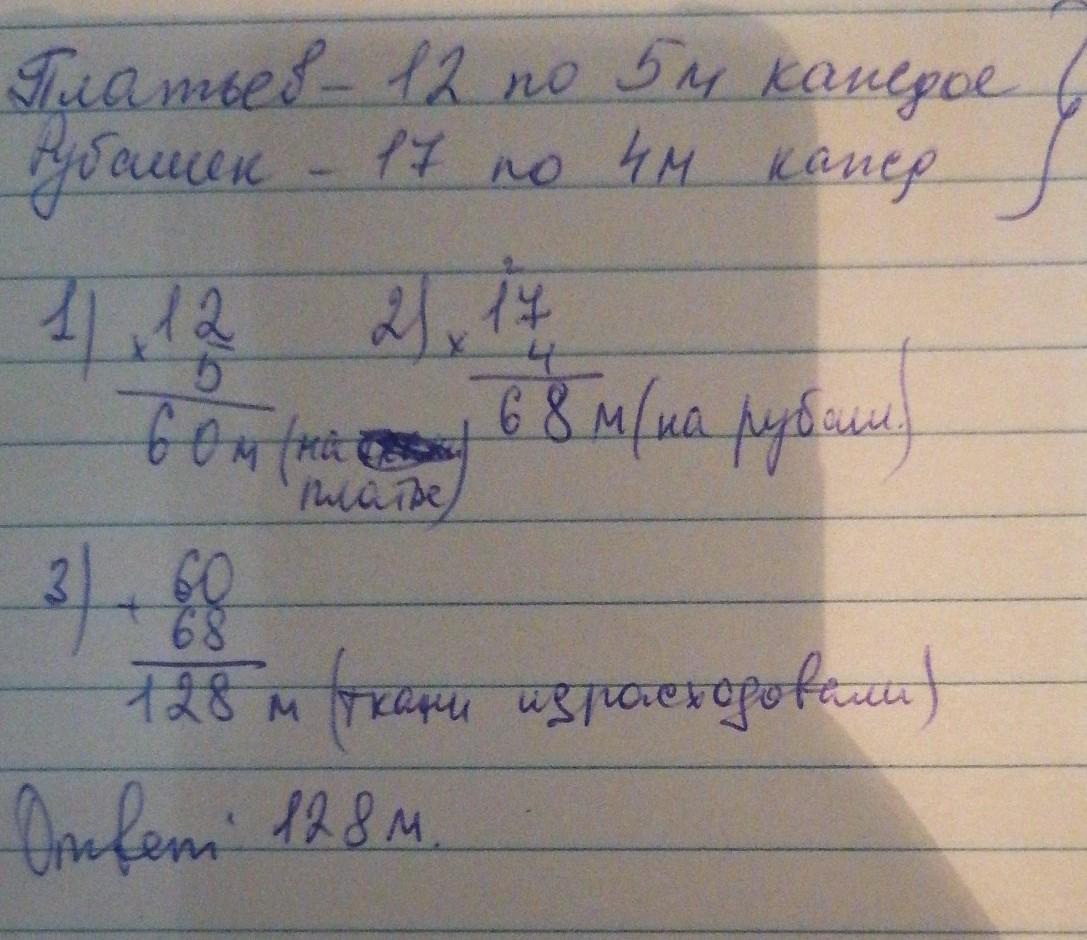 Платьев - 12 по 5м каждое }
Рубашек - 17 по 4м кажд
1) × 12
5
60м (на платье)
2) × 17
4
68м (на рубаш.)
3) + 60
68
128 м (ткани израсходовали)
Ответ: 128м.